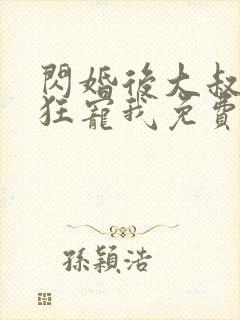 閃婚後大叔
狂寵我免費
孫穎浩